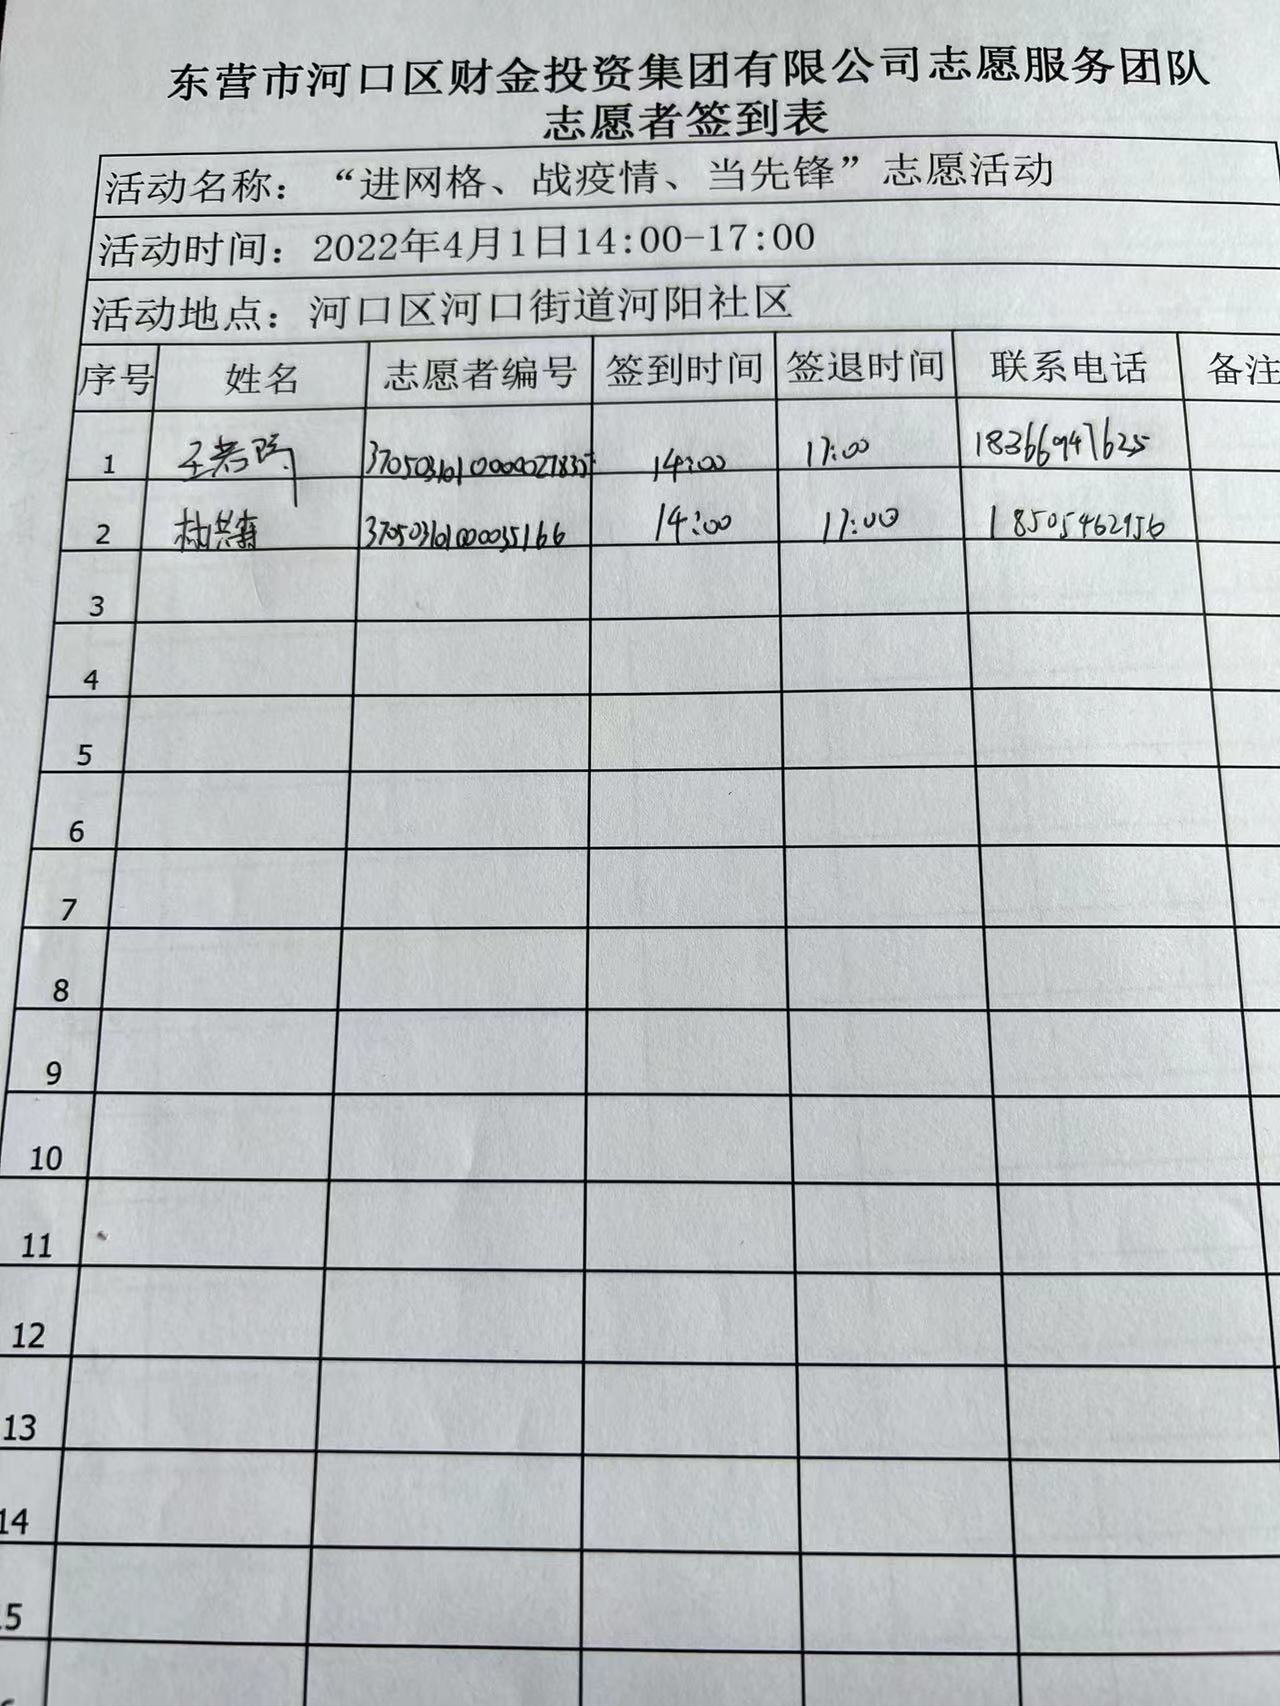 东营市河口区财金投资集团有限公司志愿服务团队
志愿者签到表
活动名称：“进网格、战疫情、当先锋”志愿活动
活动时间：2022年4月1日14:00-17:00
活动地点：河口区河口街道河阳社区
序号 姓名 志愿者编号 签到时间 签退时间 联系电话 备注
1 14:00 17:00 18366947625
2 37050361000035166 14:00 17:00
3
4
5
6
7
8
9
10
11
12
13
14